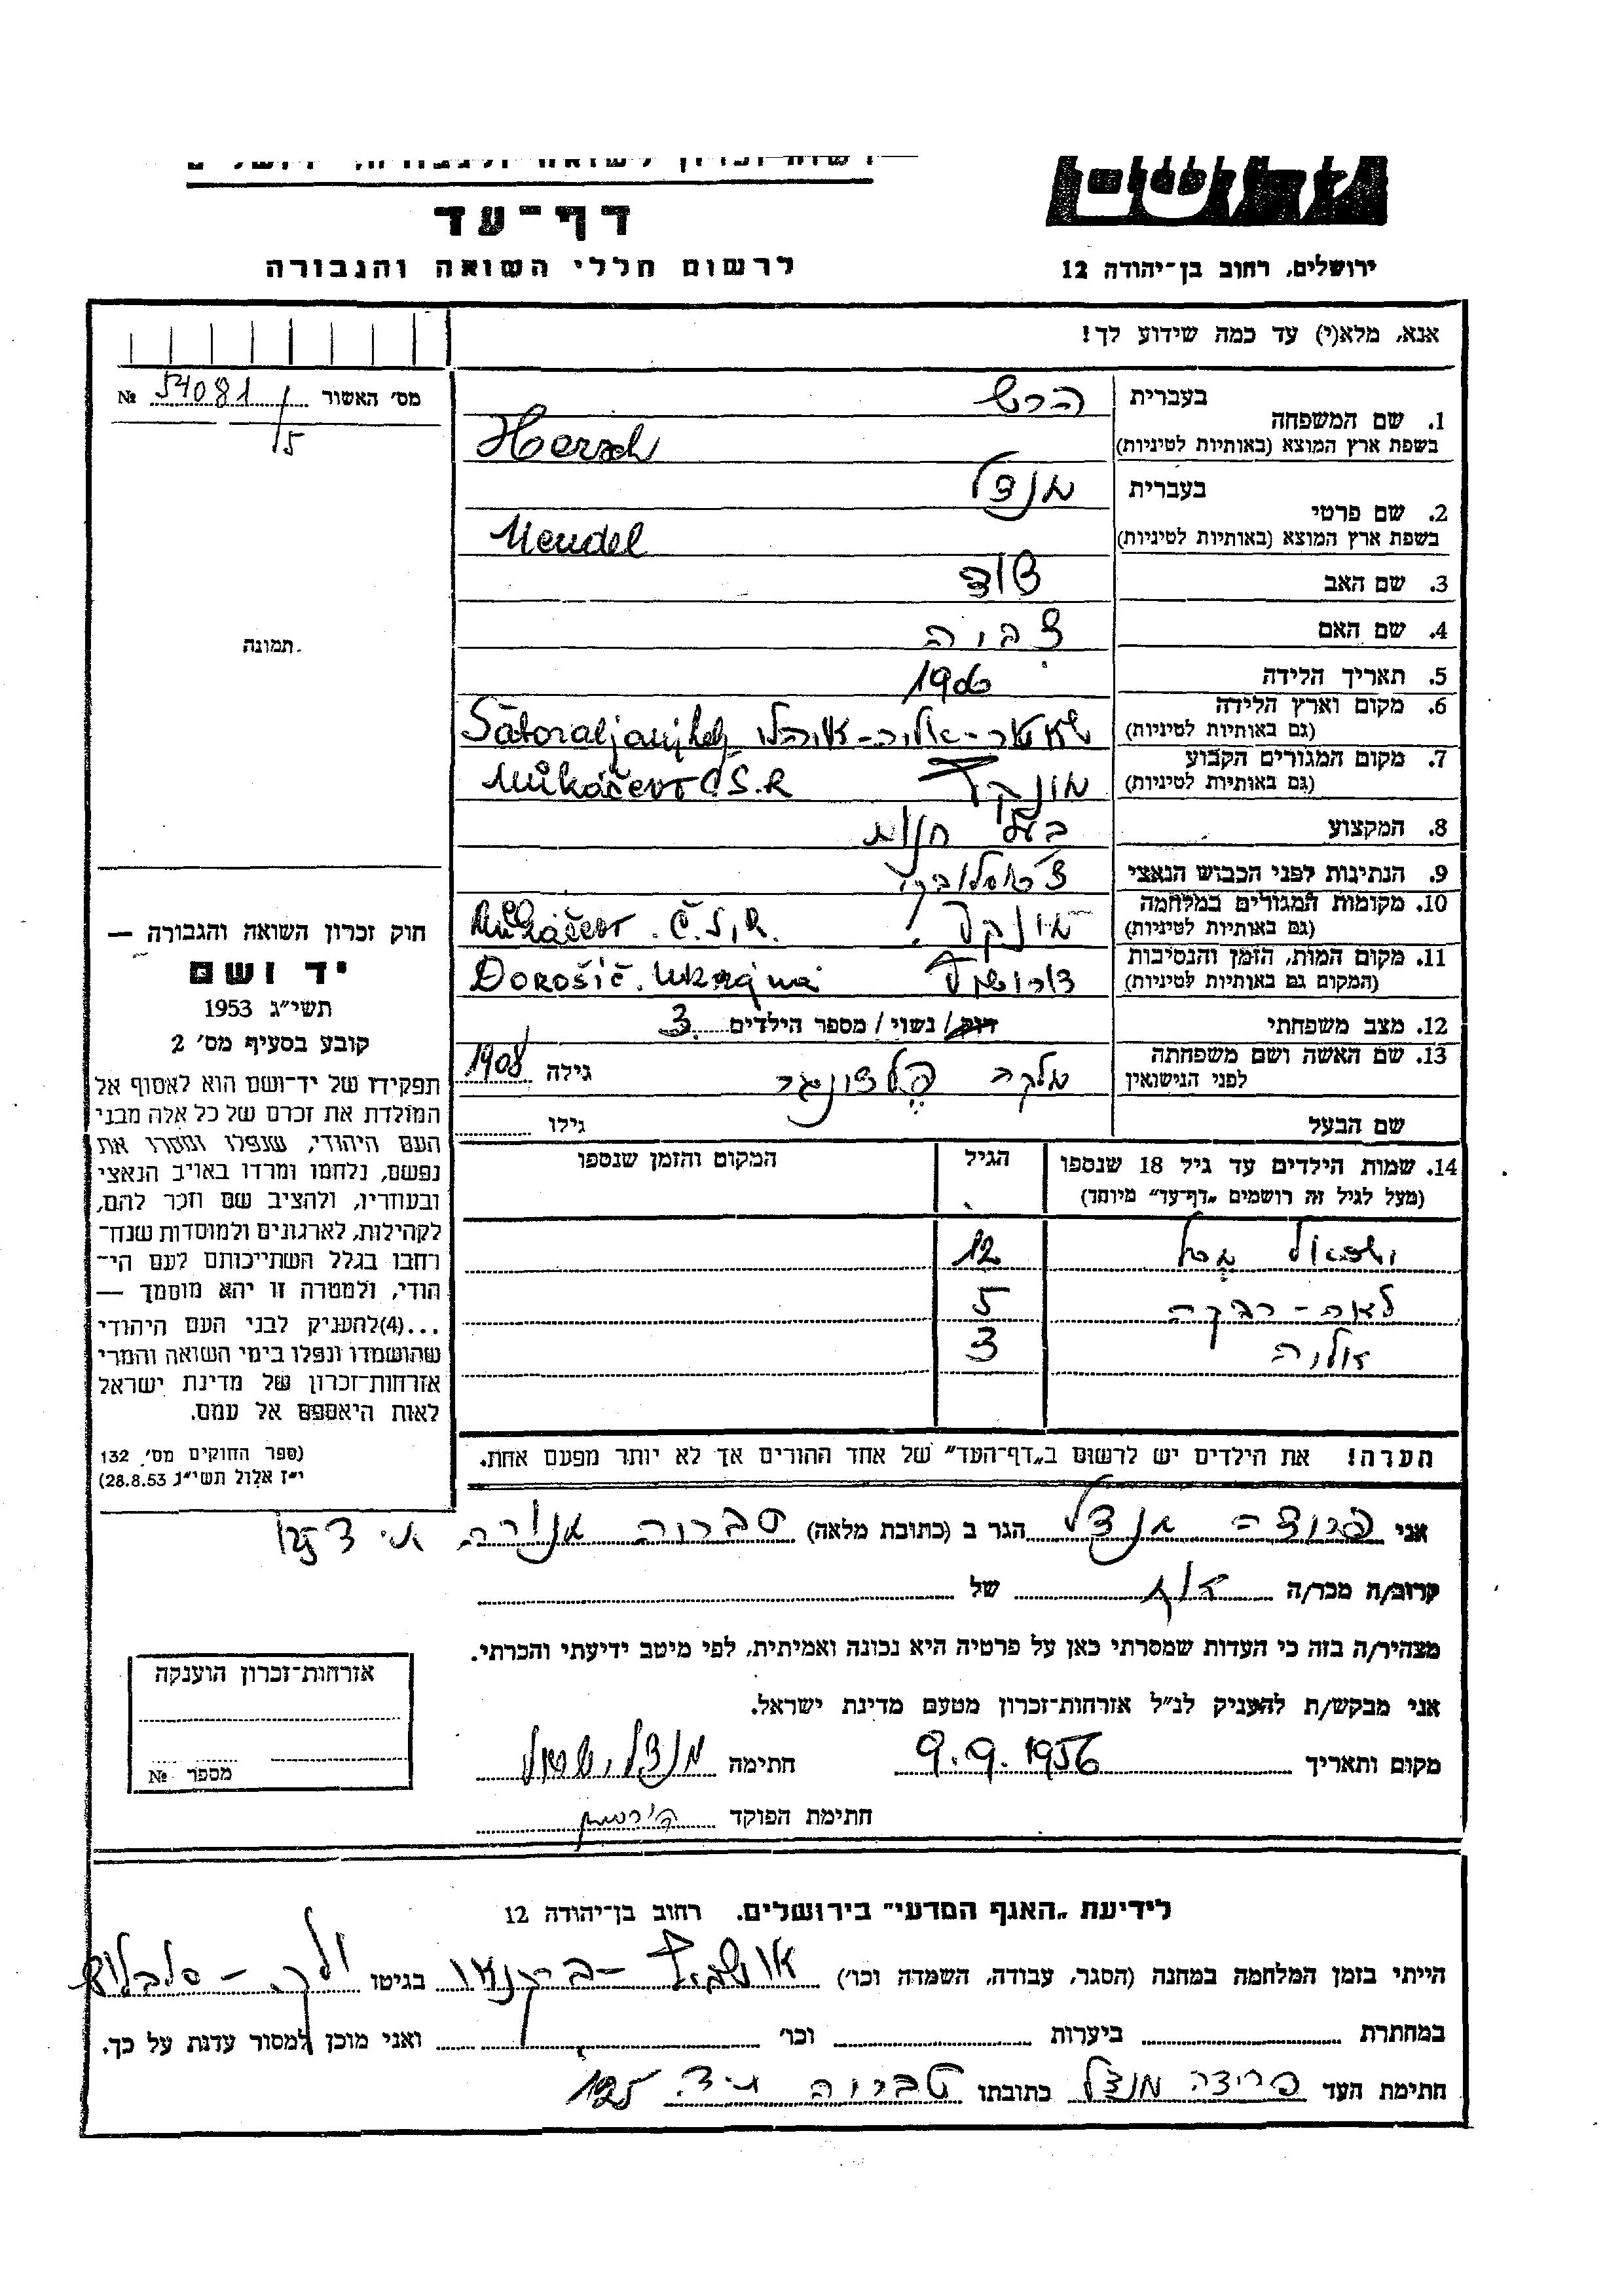 דף-עד
לרשום חללי השואה והגבורה
ירושלים, רחוב בן-יהודה 12
אנא, מלא(י) עד כמה שידוע לך!
מס׳ האשור 54081/5 №
1. שם המשפחה
בעברית הרש
בשפת ארץ המוצא (באותיות לטיניות) Hersch
2. שם פרטי
בעברית מנדל
בשפת ארץ המוצא (באותיות לטיניות) Mendel
3. שם האב דוד
4. שם האם צביה
5. תאריך הלידה 1906
6. מקום וארץ הלידה
(גם באותיות לטיניות)
7. מקום המגורים הקבוע מונקץ Mukáčevo C.S.R
(גם באותיות לטיניות)
8. המקצוע בעל חנות
9. הנתינות לפני הכבוש הנאצי
10. מקומות המגורים במלחמה Mukáčevo Č.S.R.
(גם באותיות לטיניות)
11. מקום המות, הזמן והנסיבות Dorošič. Ukrajina
(המקום גם באותיות לטיניות)
12. מצב משפחתי רווק/ נשוי/ מספר הילדים 3
13. שם האשה ושם משפחתה
לפני הנישואין מלכה גילה 1908
שם הבעל גילו
14. שמות הילדים עד גיל 18 שנספו
(מעל לגיל זה רושמים „דף-עד” מיוחד)
הגיל
המקום והזמן שנספו
12
לאה-רבקה 5
3
הערה! את הילדים יש לרשום ב„דף-העד” של אחד ההורים אך לא יותר מפעם אחת.
תמונה
חוק זכרון השואה והגבורה —
יד ושם
תשי״ג 1953
קובע בסעיף מס׳ 2
תפקידו של יד-ושם הוא לאסוף אל
המולדת את זכרם של כל אלה מבני
העם היהודי, שנפלו ומסרו את
נפשם, נלחמו ומרדו באויב הנאצי
ובעוזריו, ולהציב שם וזכר להם,
לקהילות, לארגונים ולמוסדות שנח-
רבו בגלל השתייכותם לעם הי-
הודי, ולמטרה זו יהא מוסמך —
...(4)להעניק לבני העם היהודי
שהושמדו ונפלו בימי השואה והמרי
אזרחות-זכרון של מדינת ישראל
לאות היאספם אל עמם.
(ספר החוקים מס׳ 132
י״ז אלול תשי״ג 28.8.53)
אני פרידה מנדל הגר ב (כתובת מלאה)
קרוב/ה מכר/ה של
מצהיר/ה בזה כי העדות שמסרתי כאן על פרטיה היא נכונה ואמיתית, לפי מיטב ידיעתי והכרתי.
אני מבקש/ת להעניק לנ״ל אזרחות-זכרון מטעם מדינת ישראל.
מקום ותאריך 9.9.1956 חתימה
חתימת הפוקד
אזרחות-זכרון הוענקה
מספר №
לידיעת „האגף המדעי” בירושלים. רחוב בן-יהודה 12
הייתי בזמן המלחמה במחנה (הסגר, עבודה, השמדה וכו׳) אושביץ-בירקנאו בגיטו
במחתרת ביערות וכו׳ ואני מוכן למסור עדות על כך.
חתימת העד פרידה מנדל כתובתו טבריה ד. 125